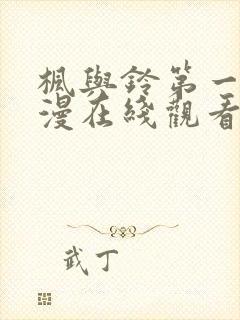 楓與鈴第一
漫在綫觀看
武丁